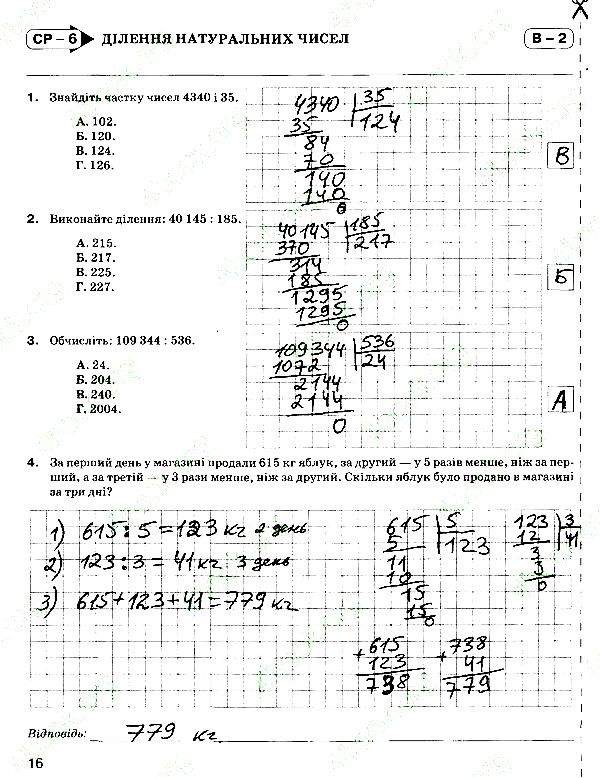 СР – 6 ДІЛЕННЯ НАТУРАЛЬНИХ ЧИСЕЛ В – 2
1. Знайдіть частку чисел 4340 і 35.
А. 102.
Б. 120.
В. 124.
Г. 126.
4340 35
35 124
84
70
140
140
0
В
2. Виконайте ділення: 40 145 : 185.
А. 215.
Б. 217.
В. 225.
Г. 227.
40145 185
370 217
314
185
1295
1295
0
Б
3. Обчисліть: 109 344 : 536.
А. 24.
Б. 204.
В. 240.
Г. 2004.
109344 536
1072 24
2144
2144
0
А
4. За перший день у магазині продали 615 кг яблук, за другий — у 5 разів менше, ніж за пер-
ший, а за третій — у 3 рази менше, ніж за другий. Скільки яблук було продано в магазині
за три дні?
1) 615:5=123 кг 2 день
2) 123:3=41 кг 3 день
3) 615+123+41=779 кг
615 5
5 123
11
10
15
15
0
123 3
12 41
3
3
0
+615
123
738
+738
41
779
Відповідь: 779 кг
16